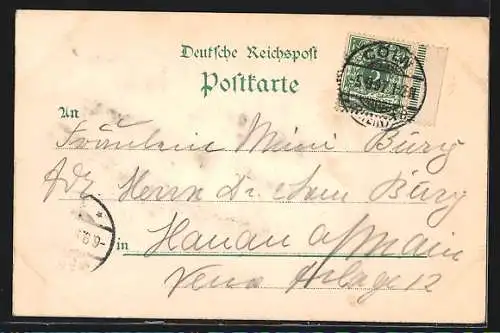 Deutsche Reichspost
Postkarte
CÖLN
An
Fräulein Mimi Bürg
Adr. Herrn Dr. Bürg
in Hanau a/Main
Neue Anlage 12